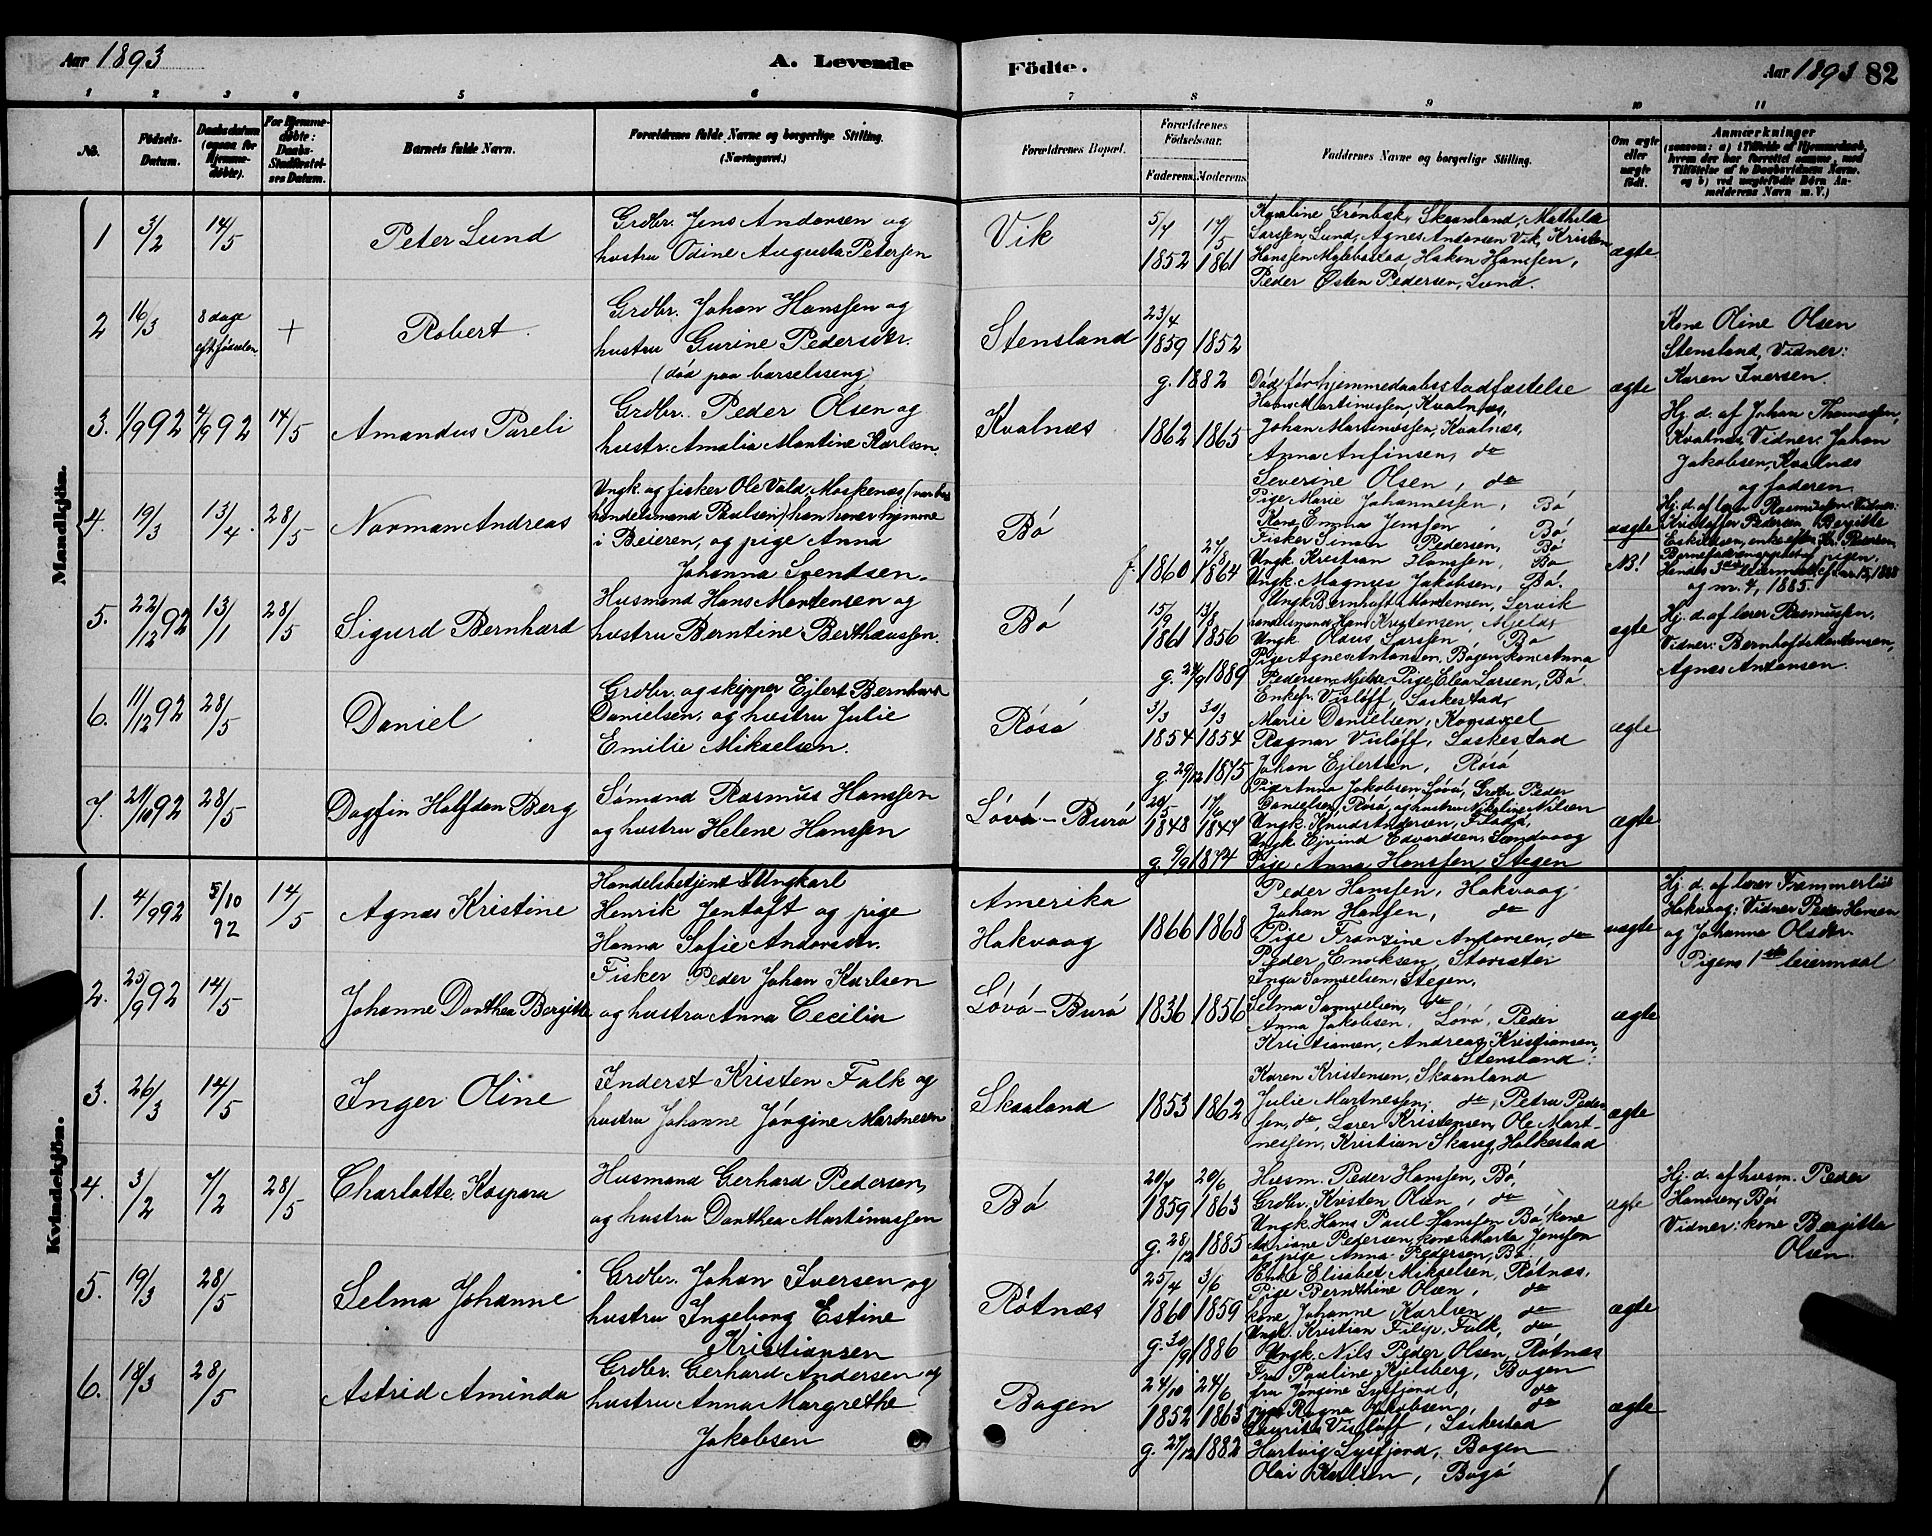 Aar 1893
A. Levende
Födte.
Aar 1893 82
1 2 3 4 5 6 7 8 9 10 11
No.
Födsels-
Datum.
Daabsdatum
(ogsaa for
Hjemme-
døbte).
For Hjemme-
døbte:
Daabs-
Stadfæstel-
ses Datum.
Barnets fulde Navn.
Forældrenes fulde Navne og borgerlige Stilling.
Forældrenes Bopæl.
Forældrenes
Fødselsaar.
Faderens. Moderens.
Faddernes Navne og borgerlige Stilling.
Om ægte
eller
uægte
født.
Anmærkninger
Mandkjön.
1 3/2 14/5
Peter Lund
Grdbr. Jens Andersen og
hustru Odine Augusta Petersen
Vik
5/4 17/5
1852 1861
Karline Grönbek, Skaanland, Mathilde
Larssen Lund, Agnes Andersen Vik, Kristen
Hanssen Myklebostad, Hakon Hanssen,
Peder Østen Pedersen, Lund.
ægte
2 16/3 8 dage
eft. fødselen
+
Robert
Grdbr. Johan Hanssen og
hustru Gurine Pedersdtr.
(død paa barselseng)
Stensland
23/4
1859 1852
g. 1882
Død før hjemmedaabsstadfæstelse
ægte
Kone Oline Olsen
Stensland, Vidner:
Karen Iversen.
3. 1/9 92 4/9 92 14/5
Amandus Pareli
Grdbr. Peder Olsen og
hustr. Amalia Mantine Karlsen
Kvalnæs
1862 1865
Hans Martinussen, Kvalnæs,
Johan Martinussen, Kvalnæs,
Anna Anfinsen, do
Severine Olsen, do
Hj. d. af Johan Thomassen,
Kvalnæs, Vidner: Johan
Jakobsen, Kvalnæs
og faderen
4. 19/3 13/4 28/5
Norman Andreas
Ungk. og fisker Ole Vald. Moskenæs (var hos
handelsmand Paulsen) han hører hjemme
i Beieren, og pige Anna
Johanna Svendsen.
Bø
27/8
f. 1860 1864
Pige Marie Johannessen, Bø
Kone Emma Jenssen Bø
Fisker Simon Pedersen, Bø
Ungk. Kristian Hanssen, Bø
Ungk. Magnus Jakobsen, Bø.
uægte
NB!
Hj. d. af lærer Rasmussen. Vidner:
Kristoffer Pedersen, Bergitte
Eskildsen, enke efter Kr. Pedersen
og m. 4, 1885.
5. 22/12 92 13/1 28/5
Sigurd Bernhard
Husmand Hans Mortensen og
hustru Berntine Berthæussen.
Bø
15/9 13/8
1861 1856
g. 24/9 1889
Ungk. Bernhoft Mortensen, Lervik
handelsmand Hans Kristensen, Mjelde
Ungk. Olaus Larssen, Bø
Pige Agnes Antonsen, Bogen, kone Anna
Pedersen, Mjelde, Pige Elea Larsen, Bø
ægte
Hj. d. af lærer Rasmussen.
Vidner: Bernhoft Mortensen,
Agnes Antonsen.
6. 11/12 92 28/5
Daniel
Grdbr. og skipper Ejlert Bernhard
Danielsen, og hustru Julie
Emilie Mikaelsen.
Røsø
3/3 30/3
1854 1854
g. 29/12 1875
Enkefr. Visløff, Laskestad,
Marie Danielsen, Korsaxel
Ragnar Visløff, Laskestad
Johan Ejlertsen, Røsø
ægte
7. 21/10 92 28/5
Dagfin Halfdan Berg
Sømand Rasmus Hanssen
og hustru Helene Hanssen
Løvø-Burø
20/5 17/6
1848 1844
g. 9/9 1874
Pige Anna Jakobsen, Løvø, Grdbr. Peder
Danielsen, Røsø, og hustru Nikoline Nilsen
Ungk. Knud Andersen, Flada,
Ungk. Ejvind Edvardsen, Sandvaag
Pige Anna Hanssen, Stegen
ægte
Kvindekjön.
1. 4/9 92 5/10 92 14/5
Agnes Kristine
Handelsbetjent & Ungkarl
Henrik Jentoft og pige
Hanna Sofie Andersdtr.
Amerika
Hakvaag
1866 1868
Peder Hanssen, Hakvaag.
Johan Hanssen, do
Pige Franzine Andersen, do
Peder Enoksen, Storsæter
uægte
Hj. d. af lærer Frammerlie
Hakvaag: Vidner Peder Hansen
og Johanna Olsdtr.
Pigens 1ste leiermaal
2. 25/9 92 14/5
Johanne Dorthea Bergitte
Fisker Peder Johan Karlsen
og hustru Anna Cecilia
Løvø-Burø
1836 1856
Inga Samuelsen, Stegen,
Selma Samuelsen, do
Anna Jakobsen, Løvø, Peder
Kristiansen, Andreas Kristiansen,
Stensland.
ægte
3. 26/3 14/5
Inger Oline
Inderst Kristen Falk og
hustru Johanne Jørgine Martnesen
Skaaland
1853 1862
Karen Kristensen, Skaanland
Julie Martnessen, do, Petra Peder-
sen, do, Lærer Kristensen, Ole Mart-
nessen, Kristian Skaug, Holkestad
ægte
4. 3/2 7/2 28/5
Charlotte Kaspara
Husmand Gerhard Pedersen,
og hustru Dorthea Martinussen
Bø
20/4 20/6
1859 1863
g. 28/12 1885
Husm. Peder Hanssen, Bø,
Grdbr. Kristen Olsen, do
Ungk. Hans Paul Hanssen Bø, kone
Adriane Pedersen, kone Marta Jenssen
og pige Anna Pedersen, Bø.
ægte
Hj. d. af husm. Peder
Hanssen, Bø
Vidner: kone Bergitta
Olsen.
5. 19/3 28/5
Selma Johanne
Grdbr. Johan Iversen og
hustru Ingeborg Estine
Kristiansen
Røtnæs
25/4 3/6
1860 1859
g. 30/9 1886
Enke Elisabet Mikaelsen, Røtnæs.
Pige Bernthine Olsen, do
kone Johanne Karlsen do
Ungk. Kristian Filip Falk, do
Ungk. Nils Peder Olsen, Røtnæs
ægte
6. 18/3 28/5
Astrid Aminda
Grdbr. Gerhard Andersen og
hustru Anna Margrethe
Jakobsen
Bogen
24/10 24/6
1852 1863
g. 27/12 1882
Fru Pauline Kjelsberg, Bogen
fru Jørgine Lysfjord, do
pige Ragna Jakobsen, do
Laurits Visløff, Laskestad
Hartvig Lysfjord, Bogen
Olai Karlsen, Bogø
ægte